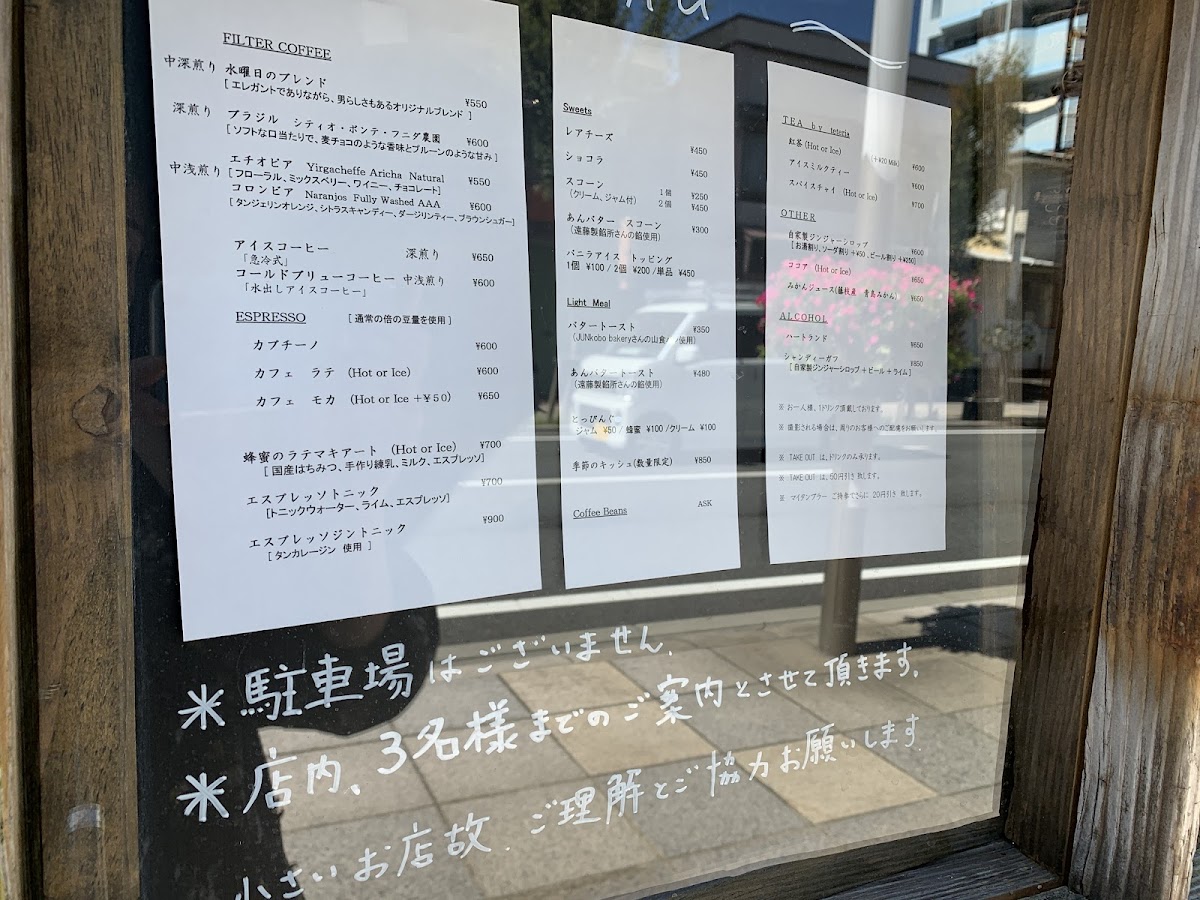 FILTER COFFEE
中深煎り 水曜日のブレンド ¥550
[ エレガントでありながら、男らしさもあるオリジナルブレンド ]
深煎り ブラジル シティオ・ポンテ・フニダ農園 ¥600
[ ソフトな口当たりで、麦チョコのような香味とプルーンのような甘み ]
中浅煎り エチオピア Yirgacheffe Aricha Natural ¥550
[ フローラル、ミックスベリー、ワイニー、チョコレート ]
コロンビア Naranjos Fully Washed AAA ¥600
[ タンジェリンオレンジ、シトラスキャンディー、ダージリンティー、ブラウンシュガー ]
アイスコーヒー 深煎り ¥650
「急冷式」
コールドブリューコーヒー 中浅煎り ¥600
「水出しアイスコーヒー」
ESPRESSO [ 通常の倍の豆量を使用 ]
カプチーノ ¥600
カフェ ラテ (Hot or Ice) ¥600
カフェ モカ (Hot or Ice +¥50) ¥650
蜂蜜のラテマキアート (Hot or Ice) ¥700
[ 国産はちみつ、手作り練乳、ミルク、エスプレッソ ]
エスプレッソトニック ¥700
[トニックウォーター、ライム、エスプレッソ]
エスプレッソジントニック ¥900
[ タンカレージン 使用 ]
Sweets
レアチーズ ¥450
ショコラ ¥450
スコーン 1個 ¥250
(クリーム、ジャム付) 2個 ¥450
あんバター スコーン ¥300
(遠藤製餡所さんの餡使用)
バニラアイス トッピング
1個 ¥100 / 2個 ¥200 /単品 ¥450
Light Meal
バタートースト ¥350
(JUNkobo bakeryさんの山食パン使用)
あんバタートースト ¥480
(遠藤製餡所さんの餡使用)
とっぴんぐ
ジャム ¥50 / 蜂蜜 ¥100 /クリーム ¥100
季節のキッシュ(数量限定) ¥850
Coffee Beans ASK
TEA by teteria
紅茶 (Hot or Ice) (+¥20 Milk) ¥600
アイスミルクティー ¥600
スパイスチャイ (Hot or Ice) ¥700
OTHER
自家製ジンジャーシロップ ¥600
[ お湯割り、ソーダ割り +¥50 、ビール割り +¥250]
ココア (Hot or Ice) ¥650
みかんジュース(藤枝産 青島みかん) ¥650
ALCOHOL
ハートランド ¥650
シャンディーガフ ¥850
[ 自家製ジンジャーシロップ + ビール + ライム ]
※ お一人様、1ドリンク頂戴しております。
※ 撮影される場合は、周りのお客様へのご配慮をお願いします。
※ TAKE OUT は、ドリンクのみ承ります。
※ TAKE OUT は、50円引き 致します。
※ マイタンブラー ご持参でさらに 20円引き 致します。
＊駐車場はございません.
＊店内、3名様までのご案内とさせて頂きます。
小さいお店故、ご理解とご協力お願いします.